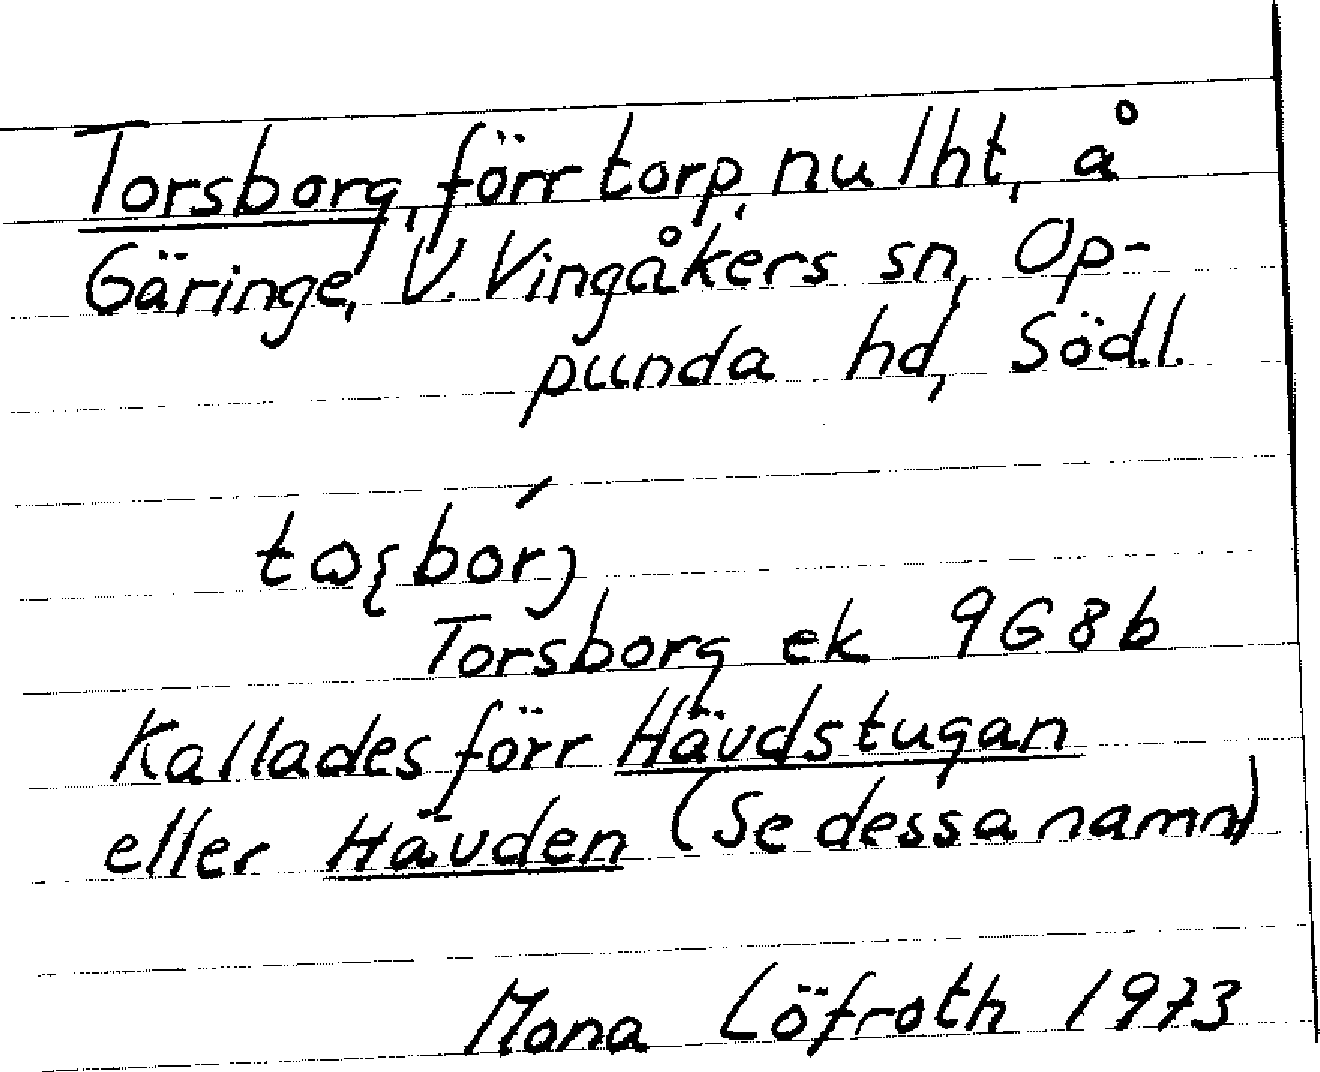 Torsborg, förr torp, nu lht, å
Gäringe, V. Vingåkers sn, Op-
punda hd, Södl.
Torsborg ek 9G8b
Kallades förr Hävdstugan
eller Hävden (Se dessa namn)
Mona Löfroth 1973